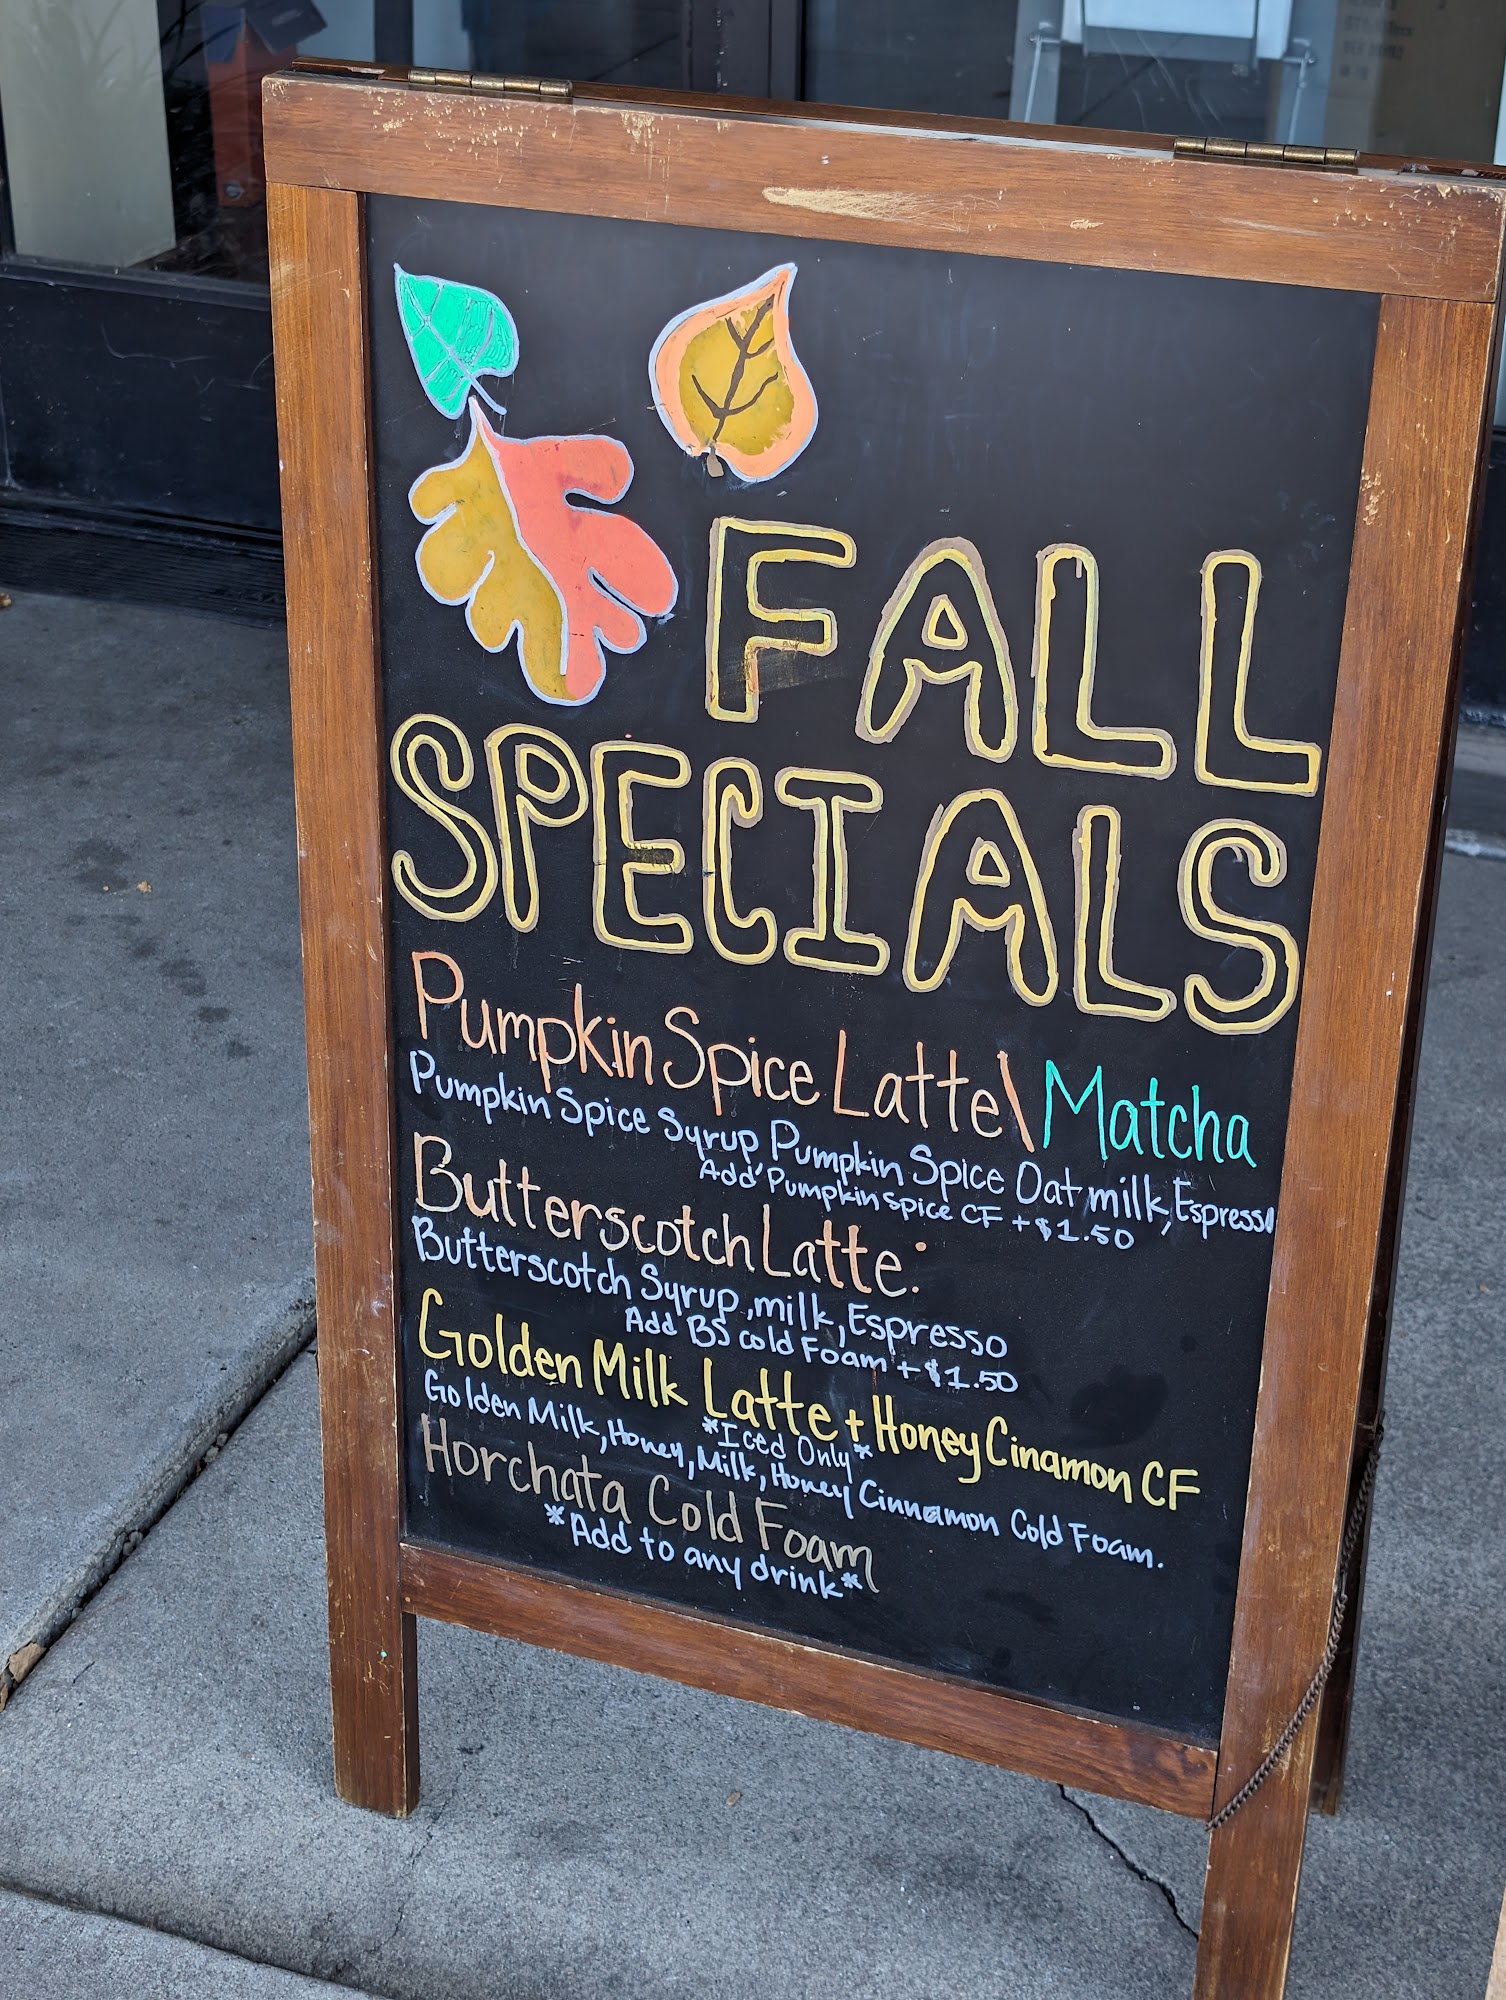 FALL
SPECIALS
Pumpkin Spice Latte\Matcha
Pumpkin Spice Syrup Pumpkin Spice Oatmilk, Espresso
Add Pumpkin spice CF + $1.50
Butterscotch Latte:
Butterscotch Syrup, milk, Espresso
Add BS cold Foam + $1.50
Golden Milk Latte + Honey Cinamon CF
*Iced Only*
Golden Milk, Honey, Milk, Honey Cinnamon Cold Foam.
Horchata Cold Foam
*Add to any drink*